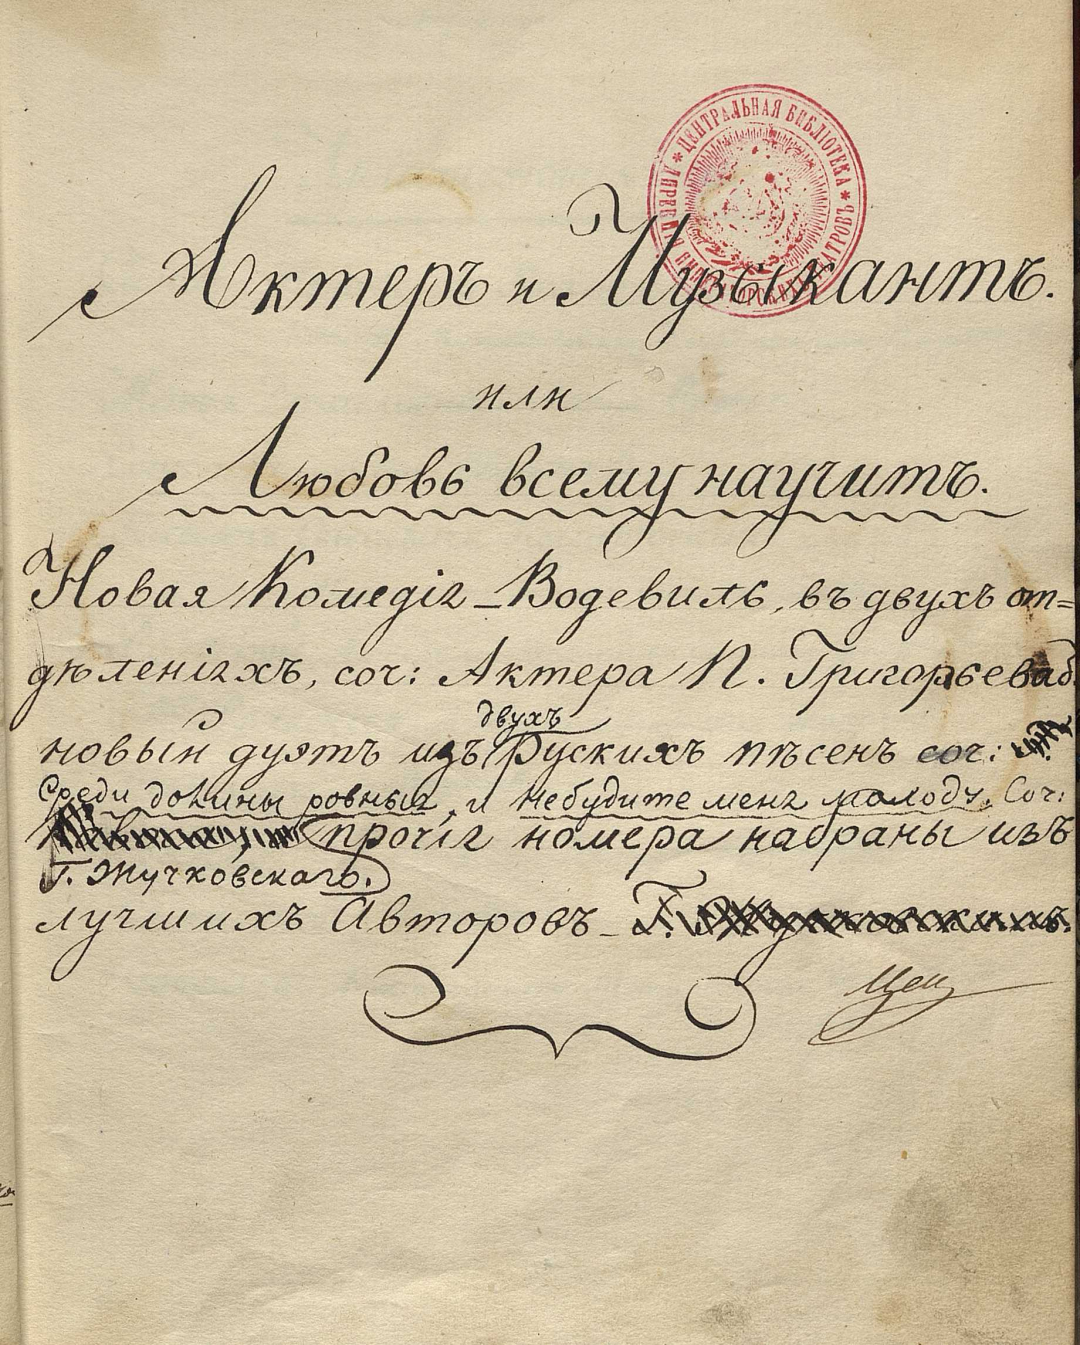 ЦЕНТРАЛЬНАЯ БИБЛІОТЕКА * ИМПЕРАТОРСКИХЪ ТЕАТРОВЪ *
Актеръ и Музыкантъ.
или
Любовь всему научитъ.
Новая Комедія - Водевиль, въ двухъ от=
дѣленіяхъ, соч: Актера П. Григорьева
двухъ
новый дуэтъ изъ Рускихъ пѣсенъ соч:
Среди долины ровныя, и небудите меня молоду. Соч:
прочія номера набраны изъ
Г. Жучковскаго.
лучшихъ Авторовъ - Г.